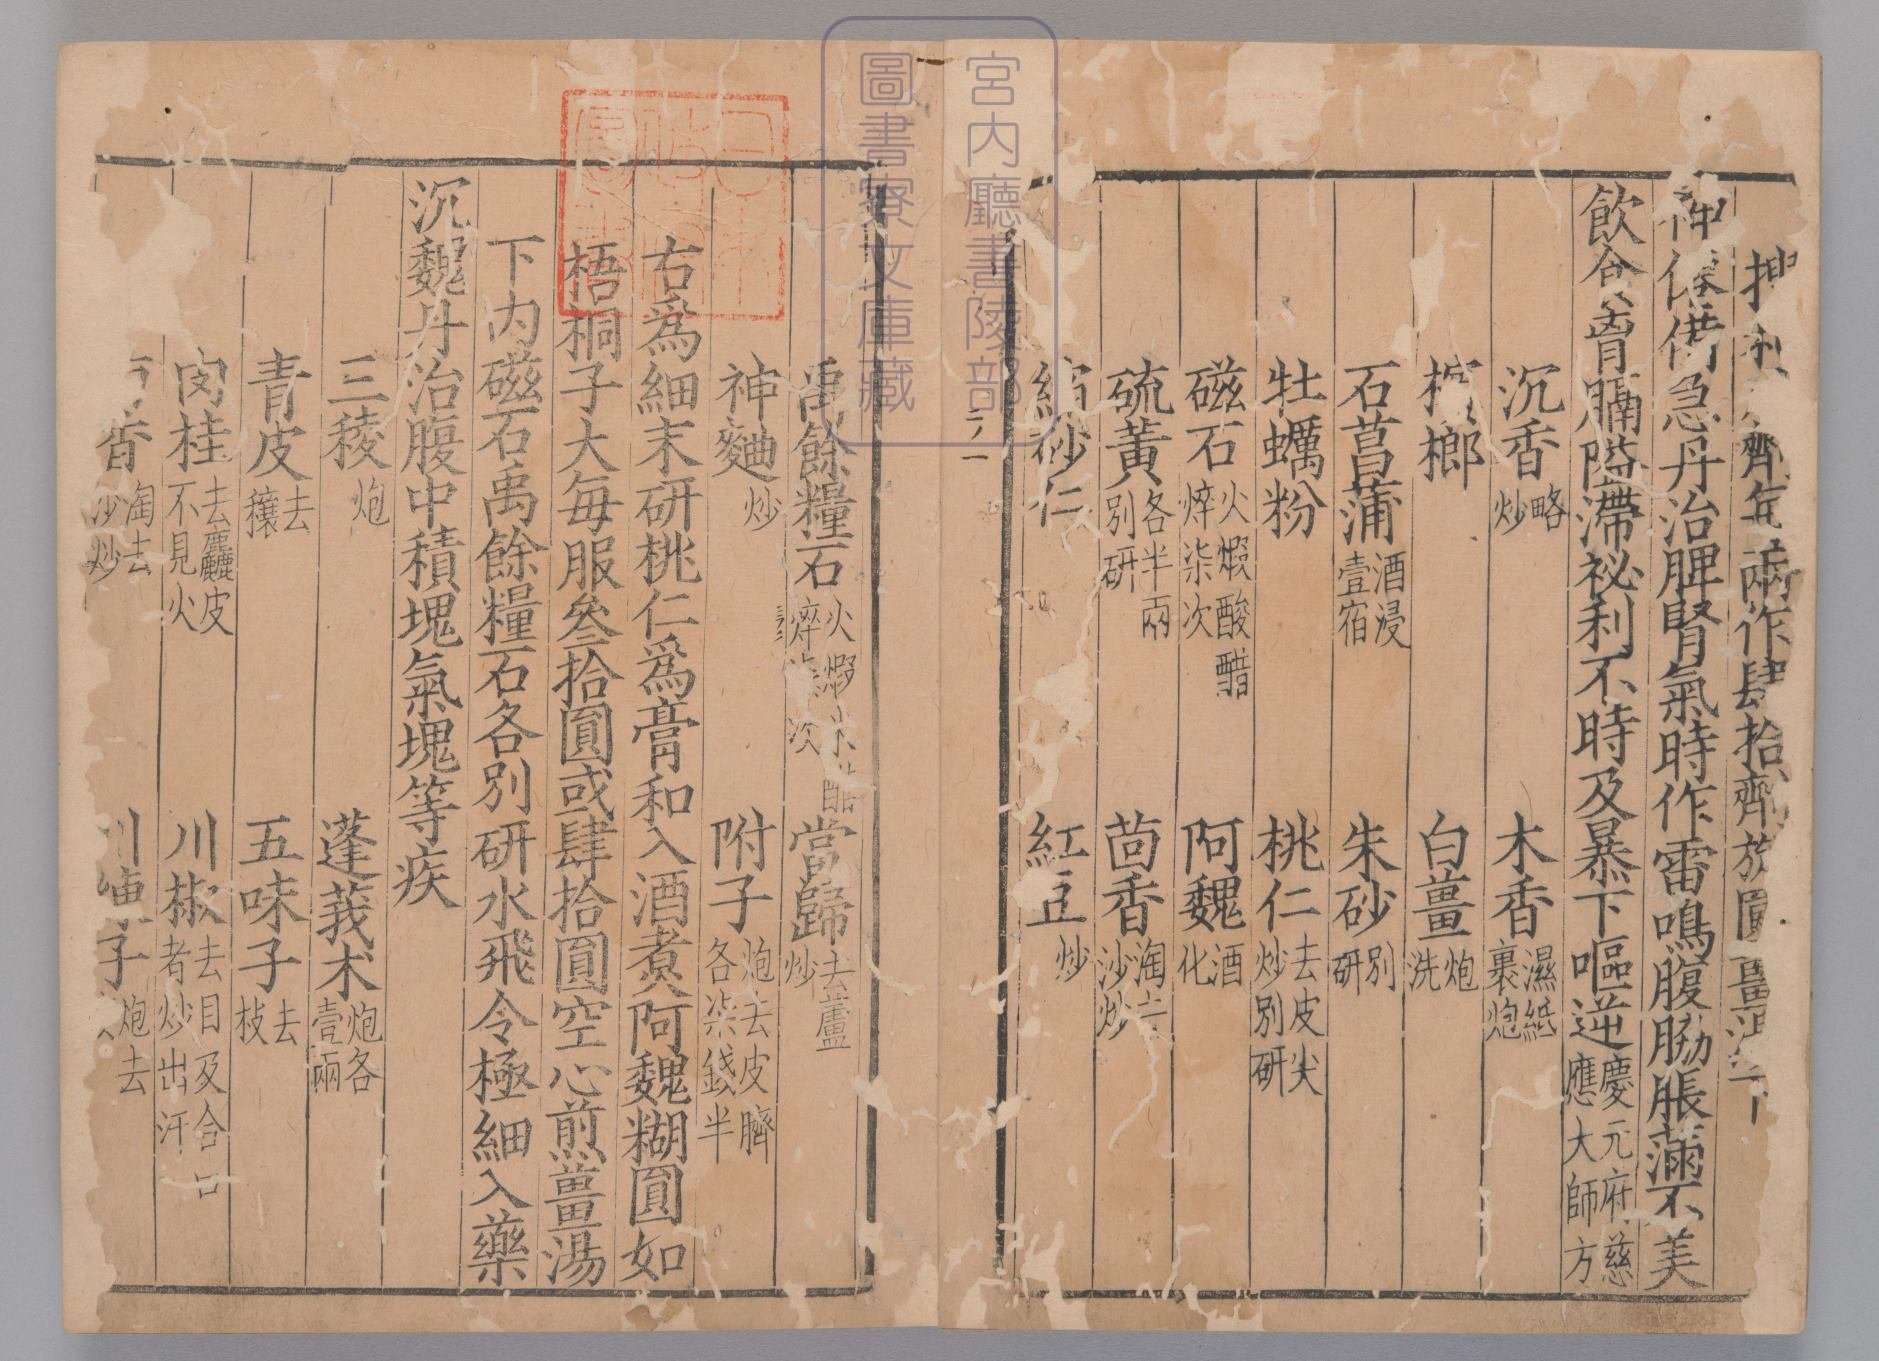 齊每兩作肆拾齊放圓薑湯下
神僊備急丹治脾腎氣時作雷鳴腹脇脹滿不美
飲食胷膈隘滯祕利不時及暴下嘔逆慶元府慈應大師方
沉香略炒 木香濕紙裹炮
檳榔 白薑炮洗
石菖蒲酒浸壹宿 朱砂別研
牡蠣粉 桃仁去皮尖炒別研
磁石火煆酸醋焠柒次 阿魏酒化
硫黃各半兩別研 茴香淘去沙炒
縮砂仁 紅豆炒
禹餘糧石火煆米醋焠柒次 當歸去蘆炒
神麯炒 附子炮去皮臍各柒錢半
右爲細末研桃仁爲膏和入酒煮阿魏糊圓如
梧桐子大每服叄拾圓或肆拾圓空心煎薑湯
下内磁石禹餘糧石各別研水飛令極細入藥
沉魏丹治腹中積塊氣塊等疾
三稜炮 蓬莪朮炮各壹兩
青皮去穰 五味子去枝
肉桂去麤皮不見火 川椒去目及合口者炒出汗
香淘去沙炒 川楝子炮去
宮内廳書陵部
圖書寮文庫藏